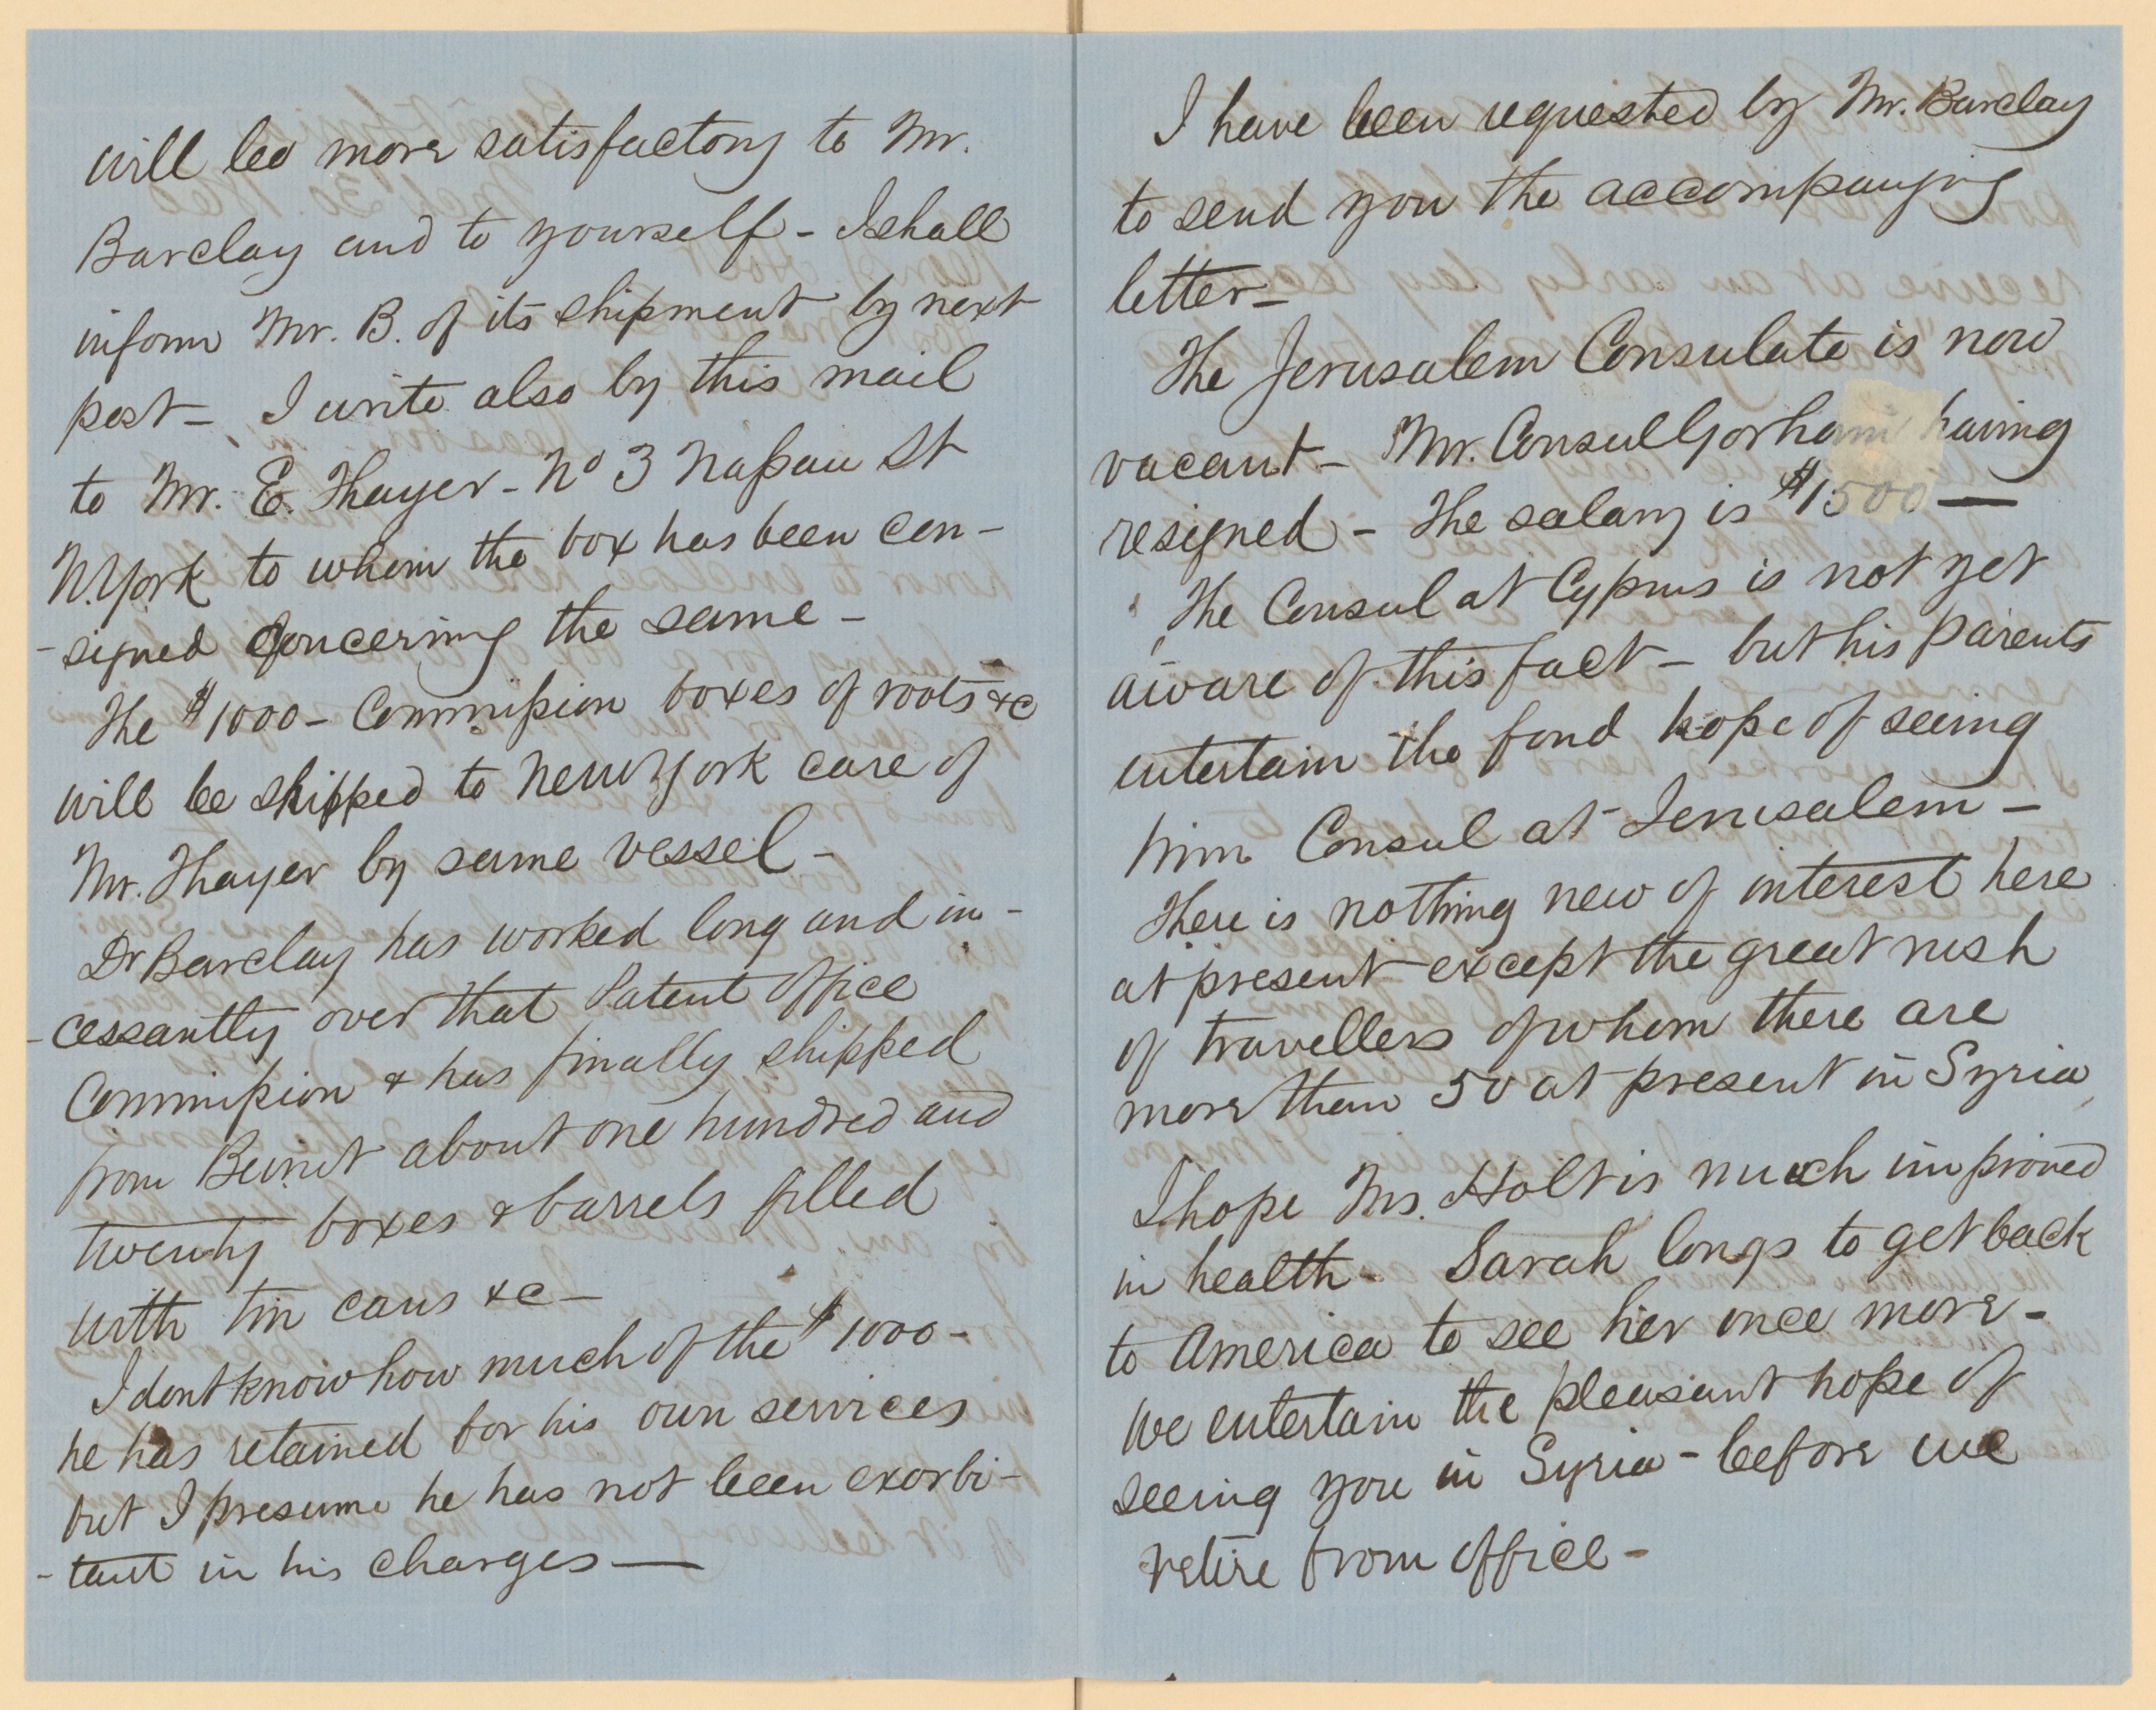 will be more satisfactory to Mr.
Barclay and to yourself - I shall
inform Mr. B. of its shipment by next
post - I write also by this mail
to Mr. E. Thayer - No 3 Nassau St
N. York to whom the box has been con-
-signed concering the same -
The $1000 - Commission boxes of roots &c
will be shipped to New York care of
Mr. Thayer by same vessel -
Dr Barclay has worked long and in-
-cessantly over that Patent Office
Commission & has finally shipped
from Beirut about one hundred and
twenty boxes & barrels filled
with tin cans &c -
I dont know how much of the $1000 -
he has retained for his own services
but I presume he has not been exorbi-
-tant in his charges —
I have been requested by Mr. Barclay
to send you the accompanying
letter -
The Jerusalem Consulate is now
vacant - Mr. Consul Gorham having
resigned - The salary is $1500 —
The Consul at Cyprus is not yet
aware of this fact - but his parents
entertain the fond hope of seeing
him Consul at Jerusalem -
There is nothing new of interest here
at present except the great rush
of travellers of whom there are
more than 50 at present in Syria
I hope Mrs. Holt is much improved
in health - Sarah longs to get back
to America to see her once more -
We entertain the pleasant hope of
seeing you in Syria - before we
retire from office -